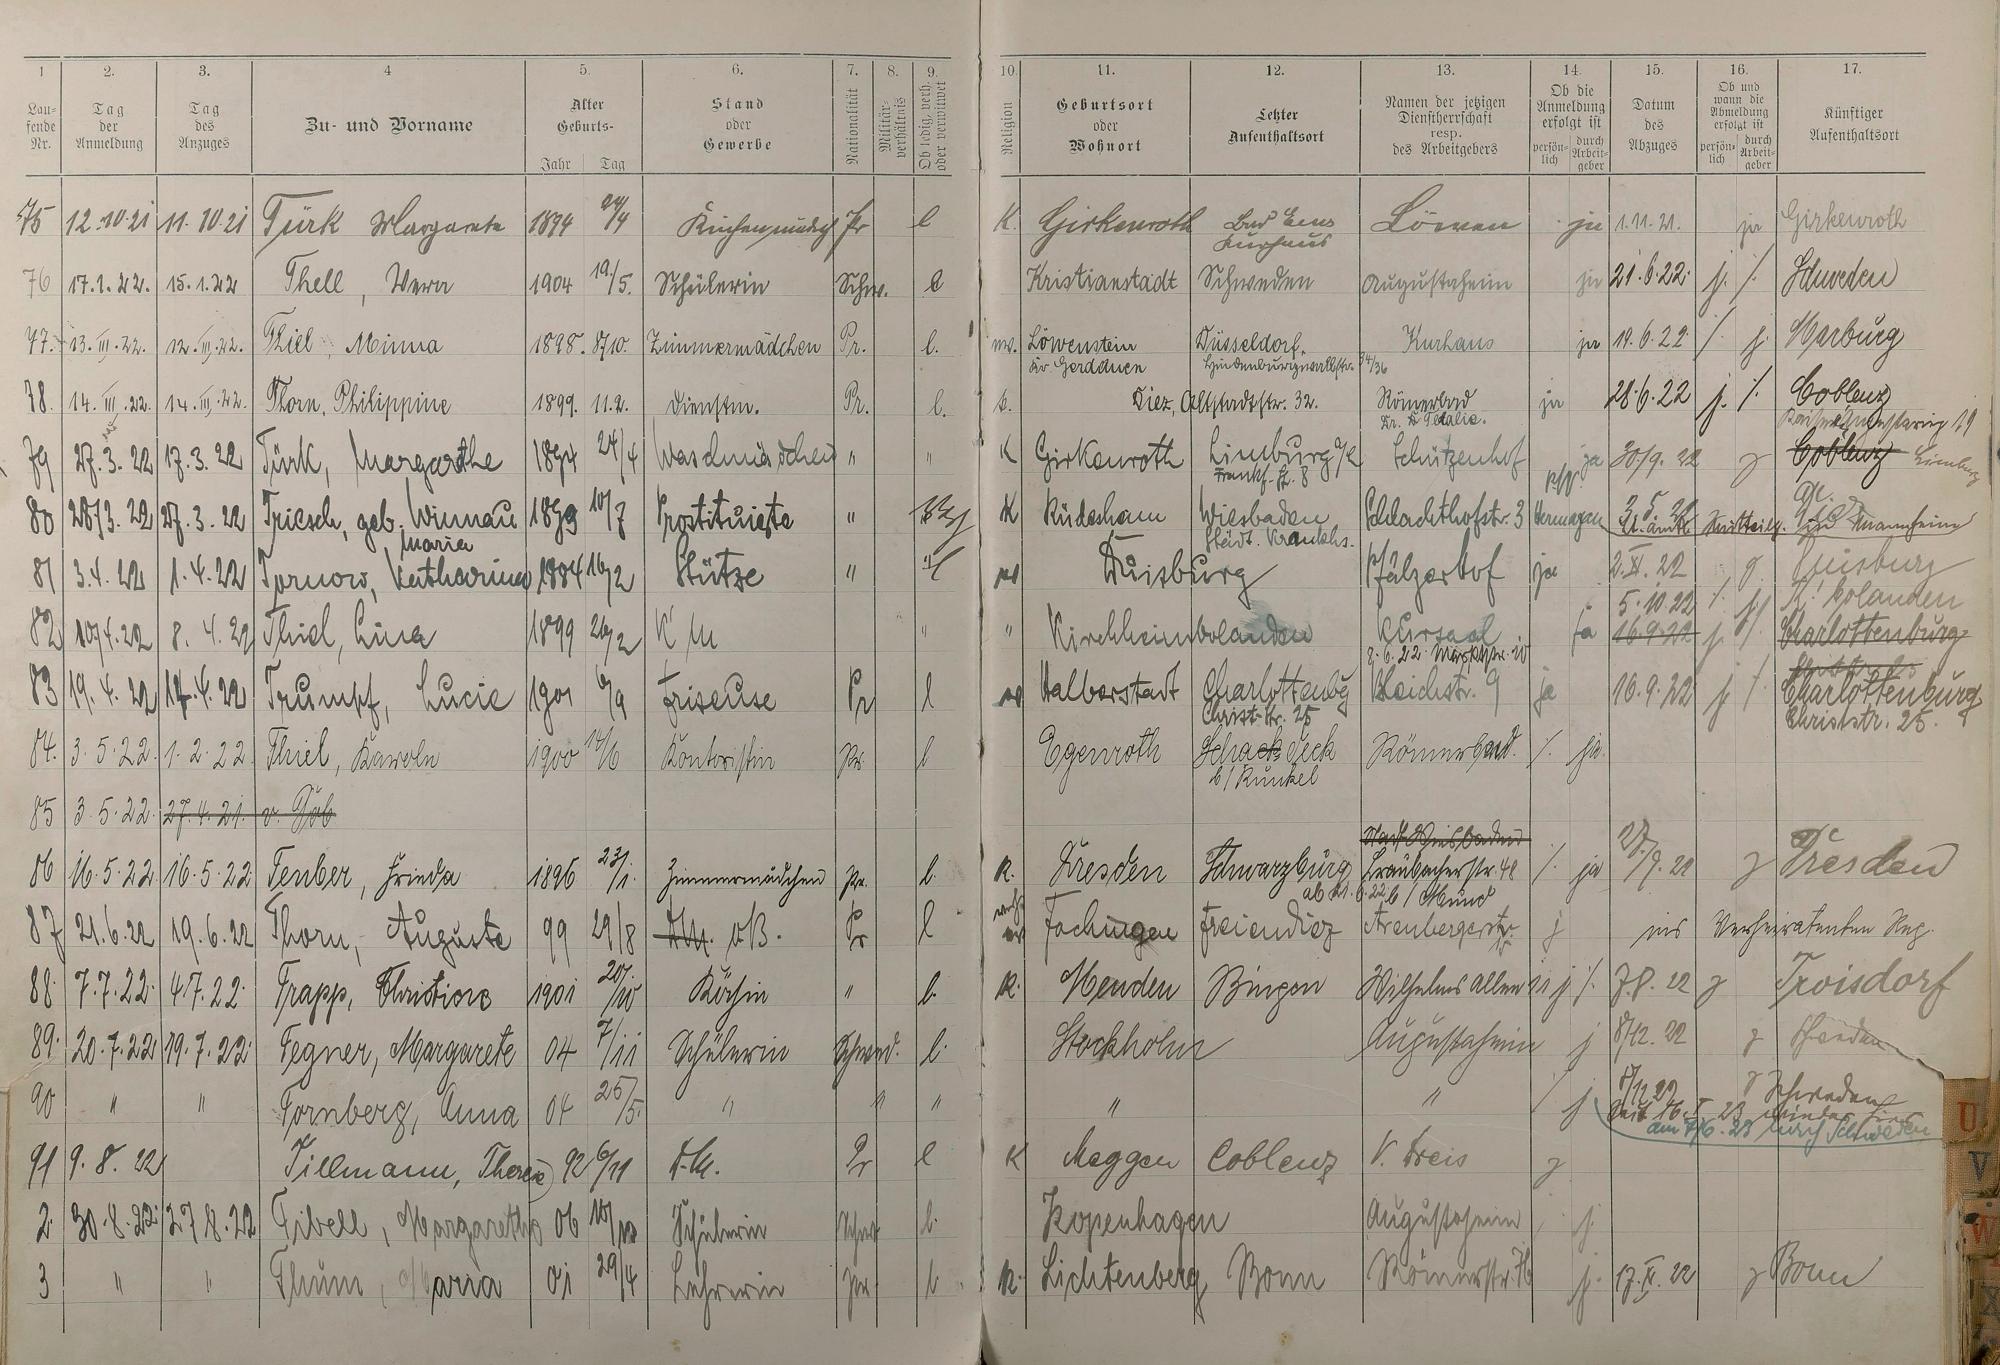 1 2. 3. 4 5. 6. 7. 8. 9. 10. 11. 12. 13. 14. 15. 16. 17.
Lau-
fende
Nr.
Tag
der
Anmeldung
Tag
des
Anzuges
Zu- und Vorname
Alter
Geburts-
Jahr Tag
Stand
oder
Gewerbe
Nationalität
Militär-
verhältnis
Ob ledig, verh.
oder verwitwet
Religion
Geburtsort
oder
Wohnort
Letzter
Aufenthaltsort
Namen der jetzigen
Dienstherrschaft
resp.
des Arbeitgebers
Ob die
Anmeldung
erfolgt ist
persön-
lich
durch
Arbeit-
geber
Datum
des
Abzuges
Ob und
wann die
Abmeldung
erfolgt ist
persön-
lich
durch
Arbeit-
geber
Künftiger
Aufenthaltsort
75 12.10.21 11.10.21 Türk Margarete 1894 24/4 Pr l K. Girkenroth Bad Ems Löwen ja 1.11.21. ja Girkenroth
Kurhaus
76 17.1.22. 15.1.22 Thell, Vera 1904 19./5. Schülerin Schw. l Kristianstadt Schweden Augustaheim ja 21.6.22. j. /. Schweden
77. 13.III.22. 12.III.22. Thiel Minna 1898. 8/10. Zimmermädchen Pr. l. Löwenstein Düsseldorf, Kurhaus ja 19.6.22 /. j. Marburg
Kr. Gerdauen Hindenburgwallstr. 34/36
78. 14.III.22. 14.III.22. Thorn, Philippine 1899. 11.2. Dienstm. Pr. l. Diez, Altstadtstr. 32. Römerbad ja 28.6.22 j. /. Coblenz
79 27.3.22 17.3.22 Türk, Margarethe 1894 24/4 Waschmädchen " " K Girkenroth Limburg a/L Schützenhof ja 30/9.22 Coblenz Limburg
Frankf. Str. 8
80 28/3.22 27.3.22 Triesch, geb. Winnau 1899 10/7 Prostituierte " K Rüdesheim Wiesbaden Schlachthofstr. 3 Mannheim
Maria Städt. Krankhs.
81 3.4.22 1.4.22 Tornow, Katharina 1884 16/2 Stütze " Duisburg Pfälzerhof ja 2.XI.22 Duisburg
5.10.22 K. bolanden
82 10/4.22 8.4.22 Thiel, Lina 1899 26/2 K M " " Kirchheimbolanden Kursaal ja 16.9.22 Charlottenburg
8.6.22 Marktstr. 10
83 19.4.22 14.4.22 Trumpf, Lucie 1901 6/9 Friseuse Pr l Halberstadt Charlottenbg Bleichstr. 9 ja 16.9.22 Charlottenburg
Christ-Str. 25 Christstr. 25.
84. 3.5.22. 1.2.22 Thiel, Karoln 1900 14/6 Kontoristin Pr. l Egenroth Schadeck Römerbad. /. ja.
b/Runkel
85 3.5.22. 27.4.21.
86 16.5.22. 16.5.22 Tenber, Frieda 1896 23/1. Zimmermädchen Pr. l. K. Dresden Schwarzburg /. ja Dresden
87 21.6.22 19.6.22 Thorn, Auguste 99 29/8 Pr l Fachingen Freiendiez Arenbergerstr. j ins Verheiratenten Reg.
88. 7.7.22. 4.7.22. Trapp, Christine 1901 20/10 Köchin " l. K. Menden Bingen Wilhelms Allee 11 j /. 7.8.22 Troisdorf
89. 20.7.22 19.7.22. Tegner, Margarete 04 7/11 Schülerin Schwed. l. Stockholm Augustaheim j 8/12.22 Schweden
90 " " Tornberg, Anna 04 25/5. " " " " " / j 8/12 22 Schweden
seit 16.I.23 wieder hier
am 7/6.23 nach Schweden
91 9.8.22 Tillmann, Therese 92 6/11 D.M. Pr l K Meggen Coblenz V. Areis
2. 30.8.22. 27.8.22 Tibell, Margaretha 06 Schülerin l. Kopenhagen Augustaheim j.
3 " " Thüm, Maria 01 29/4 Lehrerin Pr l K. Lichtenberg Bonn Römerstr. 76 j. 17.X.22 Bonn
U
V
W
X